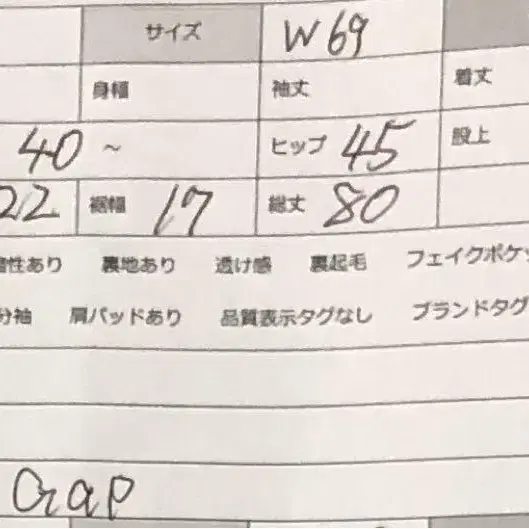 サイズ W69
身幅 袖丈 着丈
40 ~ ヒップ 45 股上
22 裾幅 17 総丈 80
性あり 裏地あり 透け感 裏起毛 フェイクポケッ
分袖 肩パッドあり 品質表示タグなし ブランドタグ
Gap